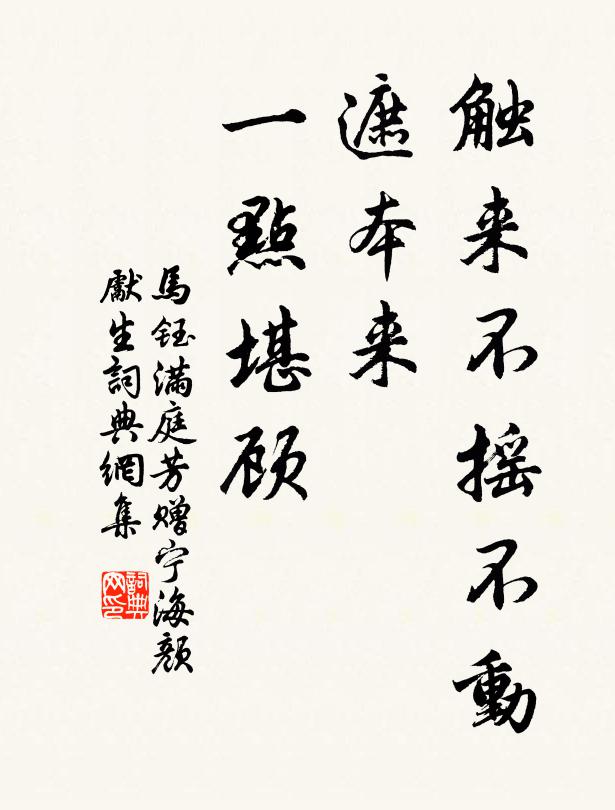 触来不摇不動
遮本来
一點堪顾
馬鈺满庭芳赠宁海颜
獻生詞典網集
詞典
网印